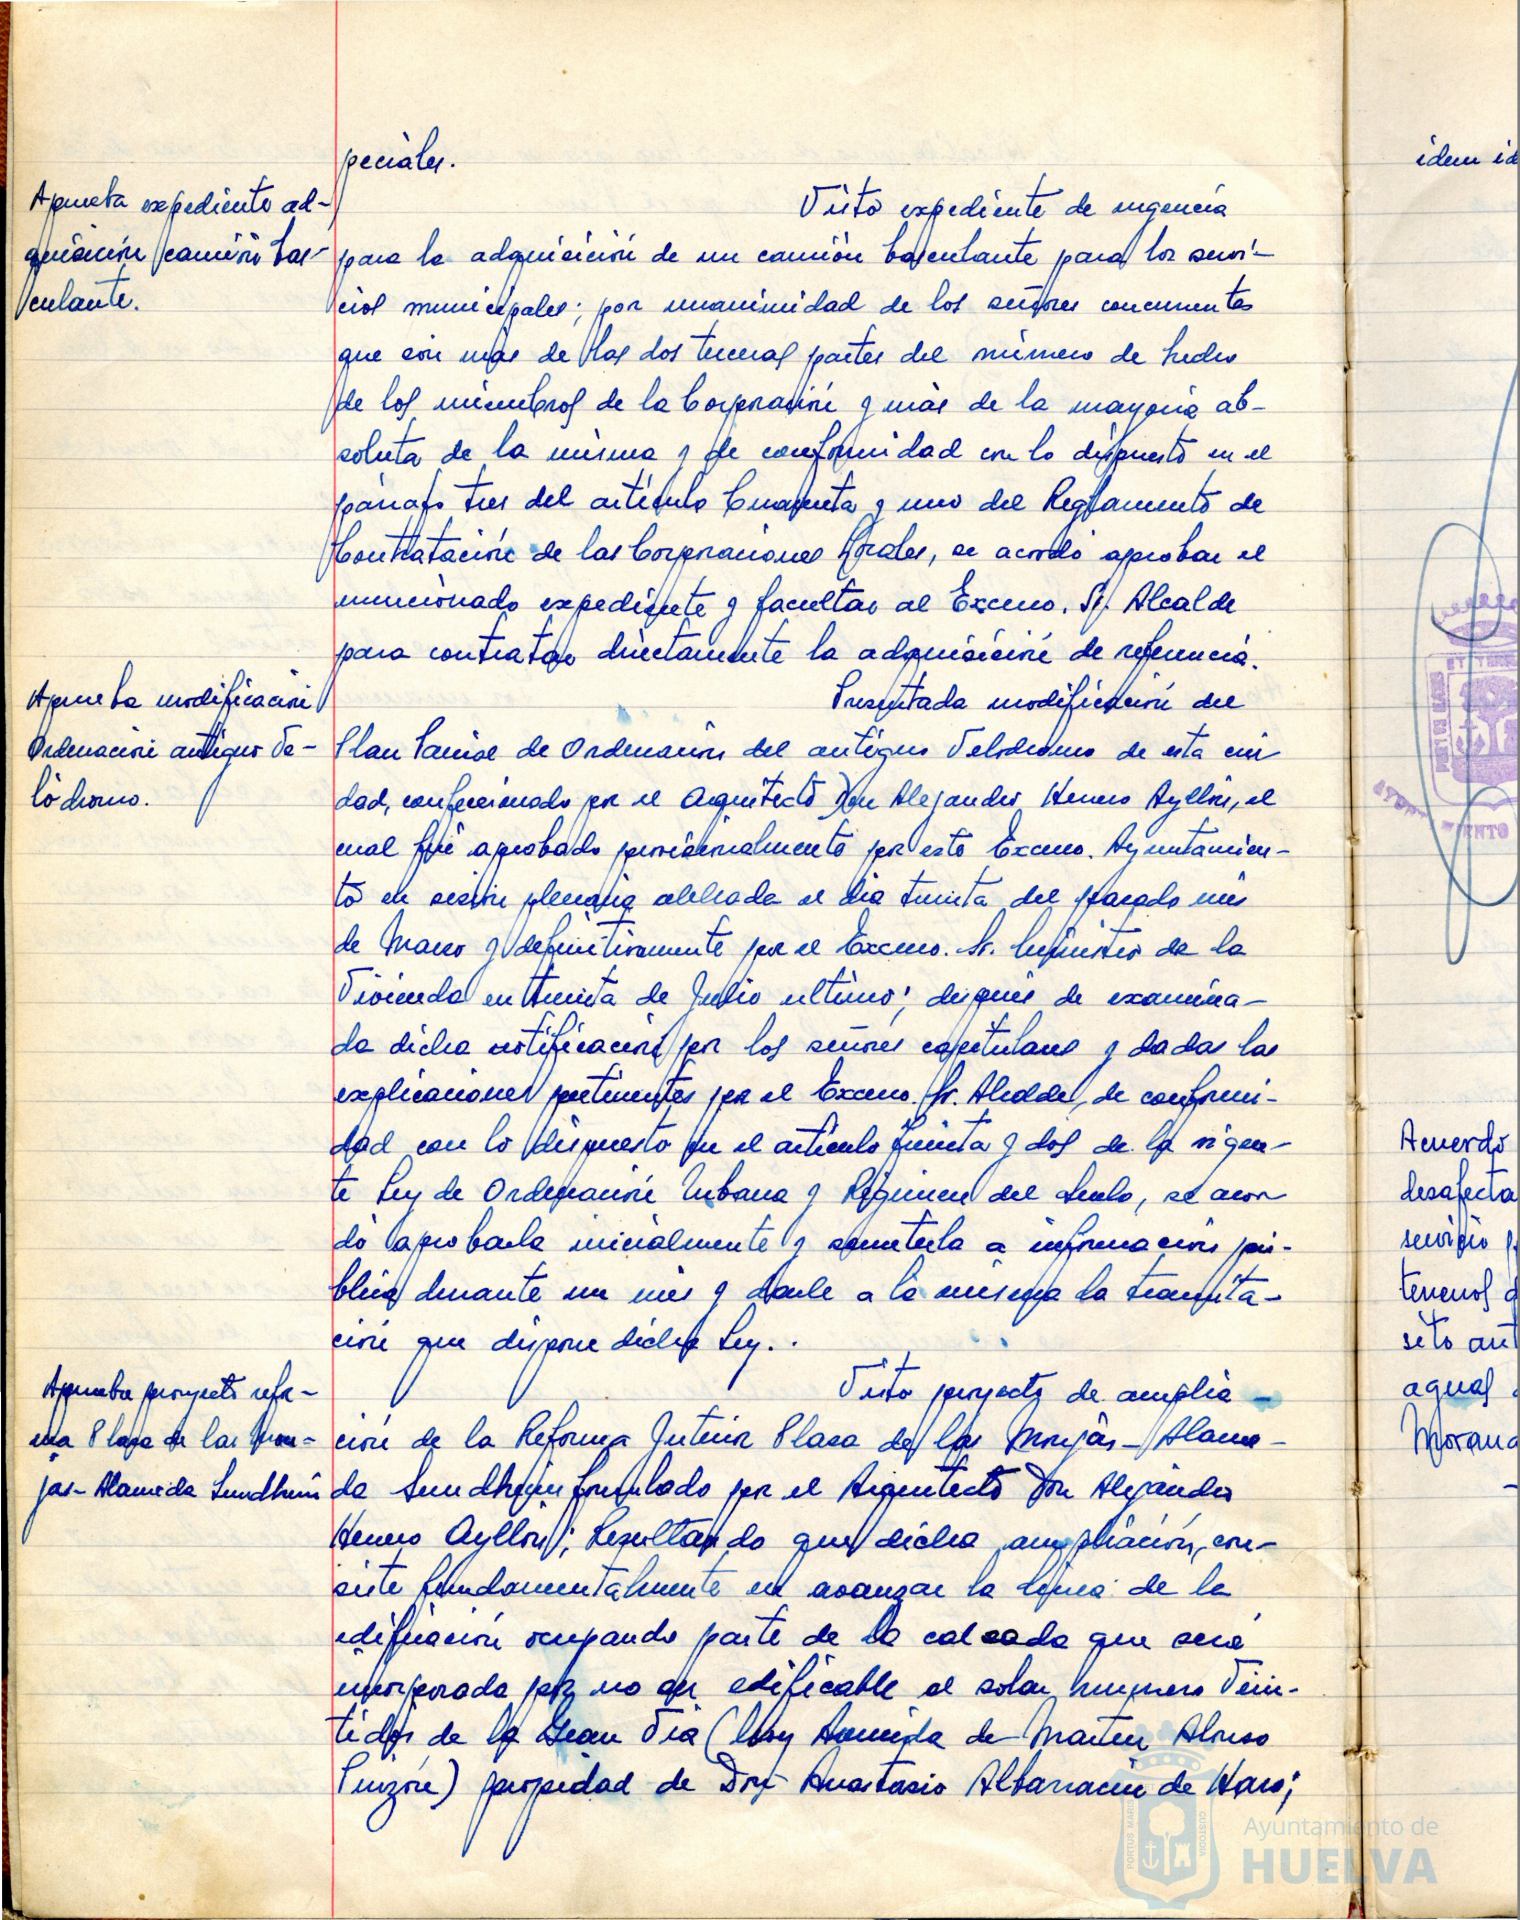 peciales.
Aprueba expediente ad-
quisición camión bas-
culante.
Visto expediente de urgencia
para la adquisición de un camión basculante para los servi-
cios municipales; por unanimidad de los señores concurrentes
que son más de las dos terceras partes del número de hecho
de los miembros de la Corporación y más de la mayoría ab-
soluta de la misma y de conformidad con lo dispuesto en el
párrafo tres del artículo Cuarenta y uno del Reglamento de
Contratación de las Corporaciones Locales, se acordó aprobar el
mencionado expediente y facultar al Excmo. Sr. Alcalde
para contratar directamente la adquisición de referencia.
Aprueba modificación
Ordenación antiguo Ve-
lódromo.
Presentada modificación del
Plan Parcial de Ordenación del antiguo Velódromo de esta ciu
dad, confeccionado por el Arquitecto Don Alejandro Herrero Ayllón, el
cual fué aprobado provisionalmente por este Excmo. Ayuntamien-
to en sesión plenaria celebrada el día treinta del pasado mes
de Marzo y definitivamente por el Excmo. Sr. Ministro de la
Vivienda en treinta de Julio último; después de examina-
da dicha notificación por los señores capitulares y dadas las
explicaciones pertinentes por el Excmo. Sr. Alcalde, de conformi-
dad con lo dispuesto en el artículo treinta y dos de la vigen-
te Ley de Ordenación Urbana y Régimen del Suelo, se acor
dó aprobarla inicialmente y someterla a información pú-
blica durante un mes y darle a la misma la tramita-
ción que dispone dicha Ley..
Aprueba proyecto refor-
ma Plaza de las Mon-
jas-Alameda Sundheim
Visto proyecto de amplia-
ción de la Reforma Interior Plaza de las Monjas-Alame-
da Sundheim formulado por el Arquitecto Don Alejandro
Herrero Ayllón; Resultando que dicha ampliación, con-
siste fundamentalmente en avanzar la línea de la
edificación ocupando parte de la calzada que será
incorporada por no ser edificable el solar número Vein-
tidós de la Gran Vía (hoy Avenida de Martín Alonso
Pinzón) propiedad de Don Anastasio Albarracín de Haro;
idem id
Acuerdo
desafecta
servicio p
terrenos d
sito ant
aguas
Morana
Ayuntamiento de
HUELVA
PORTUS MARIS
CUSTODIA